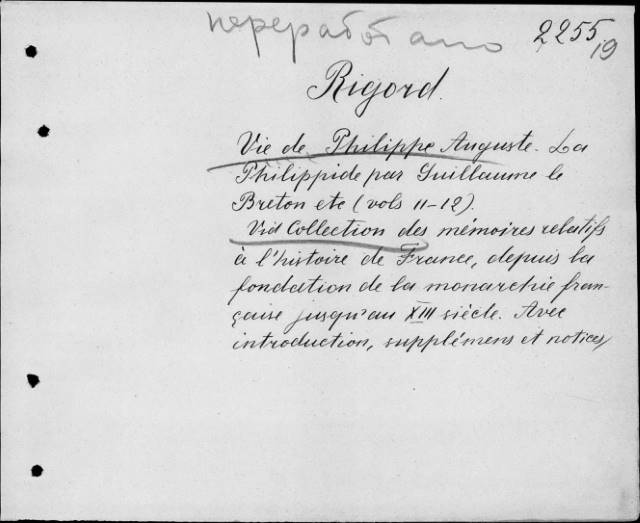 переработано
2255
19
Rigord.
Vie de Philippe Auguste. La
Philippide par Guillaume le
Breton etc (vols 11-12).
Vid Collection des mémoires relatifs
à l'histoire de France, depuis la
fondation de la monarchie fran-
çaise jusqu'au XIII siècle. Avec
introduction, supplémens et notices